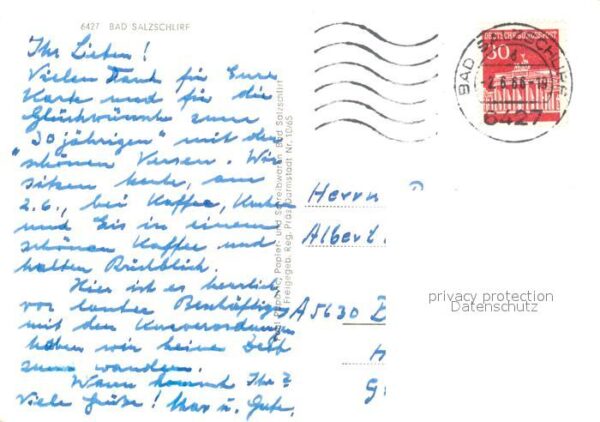 6427 BAD SALZSCHLIRF
Ihr Lieben!
Vielen Dank für Eure
Karte und für die
Glückwünsche zum
"30 jährigen" mit den
"schönen Versen. Wir
sitzen heute, am
2.6., bei Kaffee, Kuchen
und Eis in einem
schönen Kaffee und
halten Rückblick.
Hier ist es herrlich
vor lauter Beschäftig
mit den Kurverordnungen
haben wir keine Zeit
zum wandern.
Wann kommt Ihr?
Viele Grüße! Max u. Gute.
Papier- und Schreibwaren Bad Salzschlirf
Freigegeb. Reg. Präs. Darmstadt Nr. 10/65
30
DEUTSCHE BUNDESPOST
BAD SALZSCHLIRF
6427
Herrn
Albert
A5630
privacy protection
Datenschutz